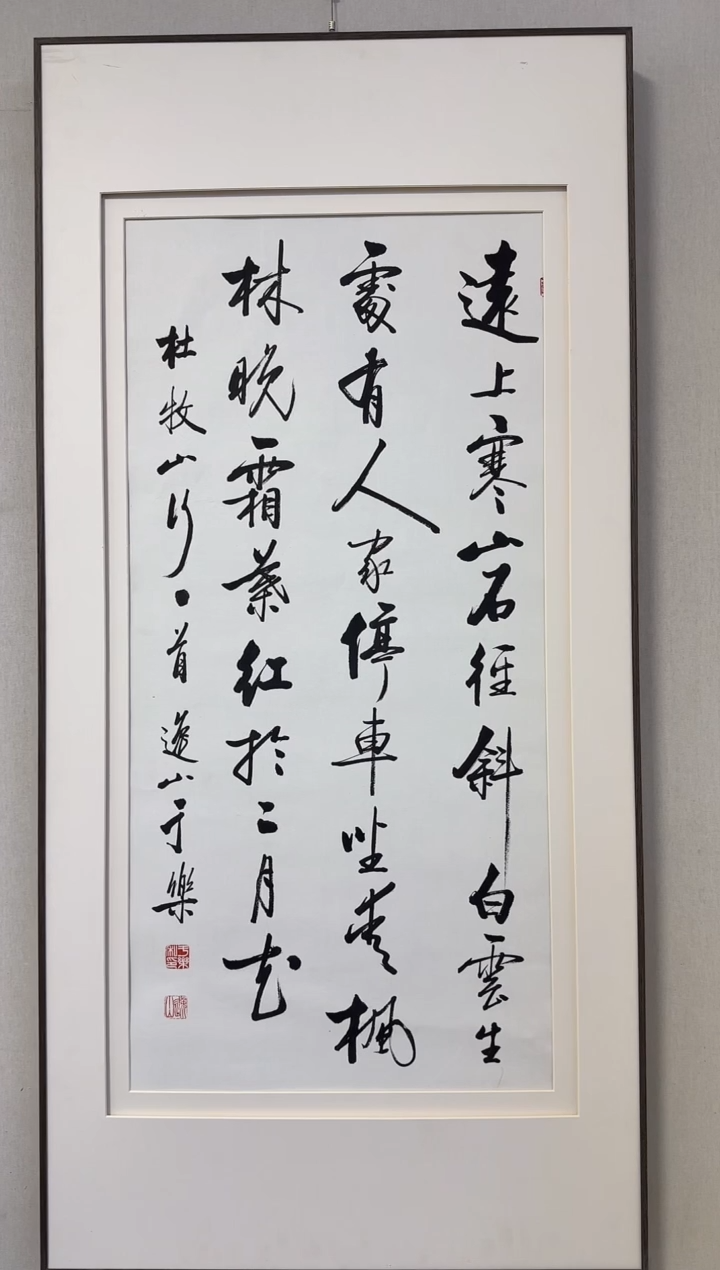 遠上寒山石徑斜白雲生
處有人家停車坐愛楓
林晚霜葉紅於二月花
杜牧山行一首逸山于樂